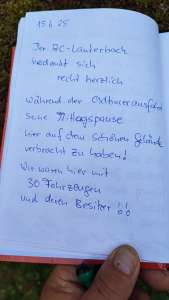 15.6.25
Der BC-Lauterbach
bedankt sich
recht herzlich
während der Oldtimerausfahrt
seine Mittagspause
hier auf dem schönen Gelände
verbracht zu haben!
Wir waren hier mit
30 Fahrzeugen
und deren Besitzer !!